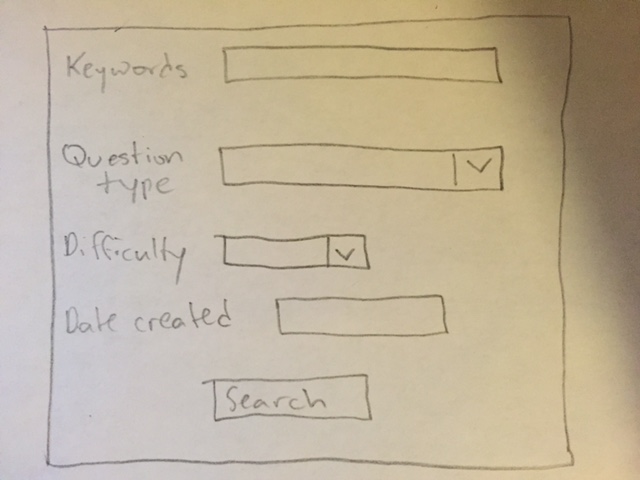 Keywords
Question
type
Difficulty
Date created
Search